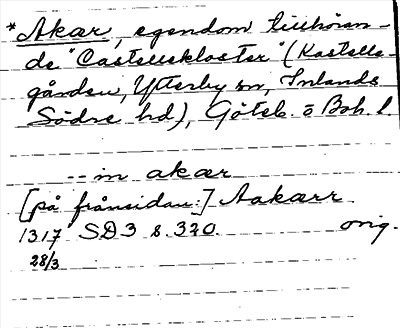 *Akær, egendom tillhöran-
de "Castellekloster" (Kastelle-
gården, Ytterby sn, Inlands
Södre hd), Göteb. o Boh. l.
-- in akær
[på frånsidan:] Aakærr
1317 SD3 s. 320. orig.
28/3